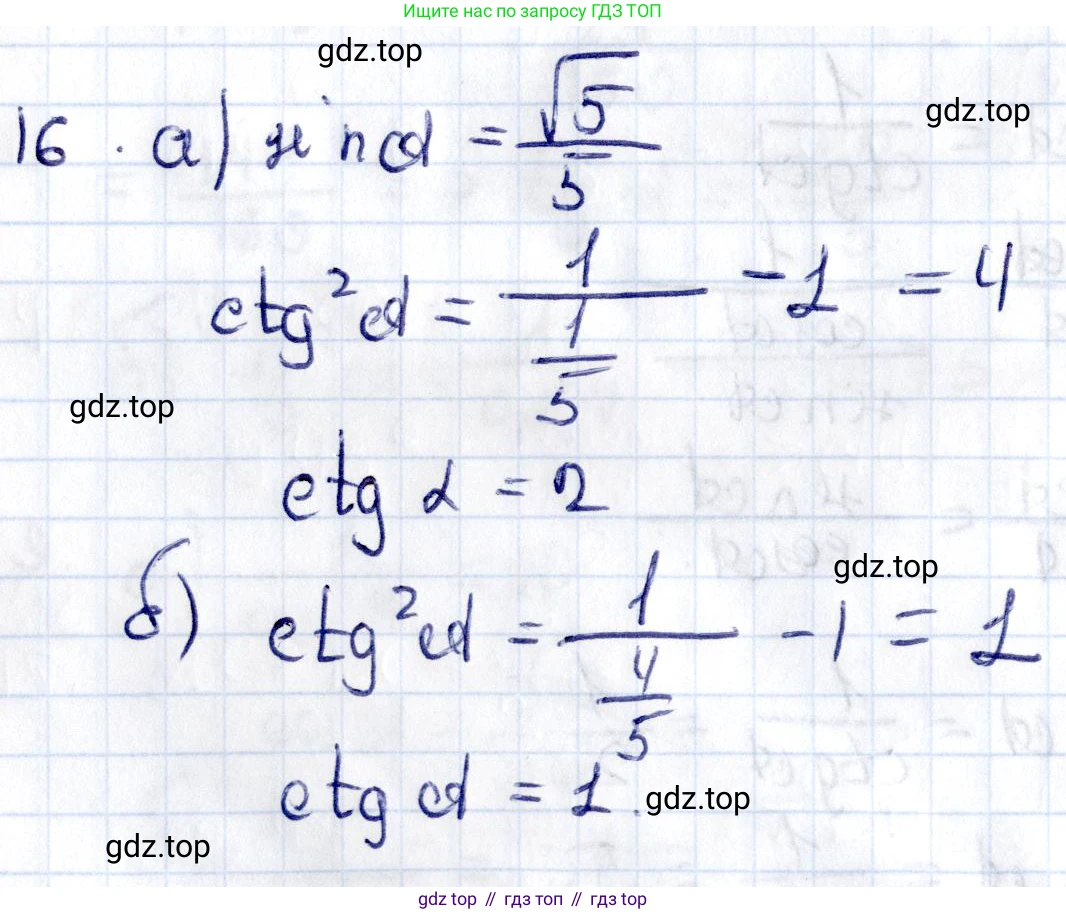 Ищите нас по запросу ГДЗ ТОП
gdz.top
gdz.top
16. а) sin α = √5/5
ctg² α = 1/(1/5) - 1 = 4
gdz.top
ctg α = 2
gdz.top
б) ctg² α = 1/(4/5) - 1 = 1
ctg α = 1.
gdz.top
gdz.top
gdz top // гдз топ // гдз top